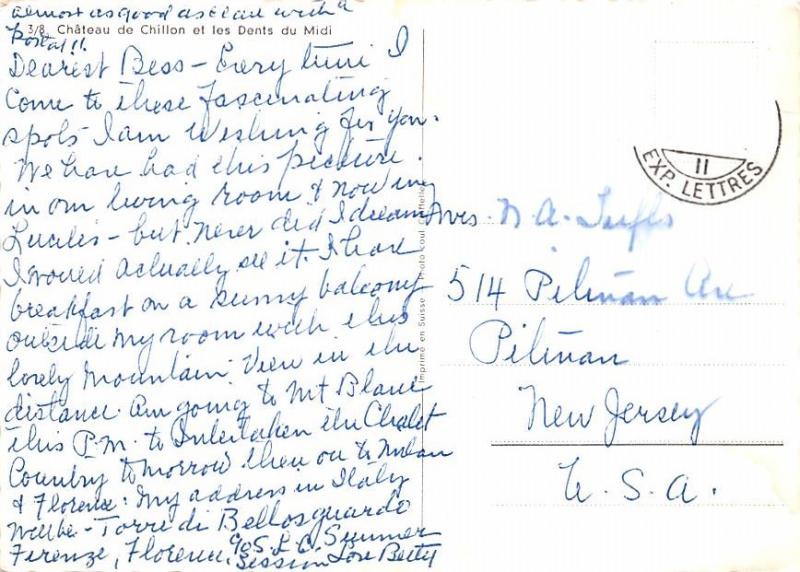 almost as good as clau with a
Postal!!
3/8 Château de Chillon et les Dents du Midi
Dearest Bess - Every time I
come to these fascinating
spots I am wishing for you.
We have had this picture
in our living room & now in
Lucile's - but never did I dream
I would actually see it. I have
breakfast on a sunny balcony
outside my room with this
lovely mountain view in the
distance. Am going to Mt Blanc
this P.M. to Interlaken the Chalet
Country tomorrow then on to Milan
& Florence. My address in Italy
will be - Torre di Bellosguardo
Firenze, Florence, c/o S. L. C. Summer
Session Love Betty
Imprimé en Suisse Photo coul.
EXP. LETTRES
II
Mrs. N. A.
514 Pitman Ave
Pitman
New Jersey
U. S. A.